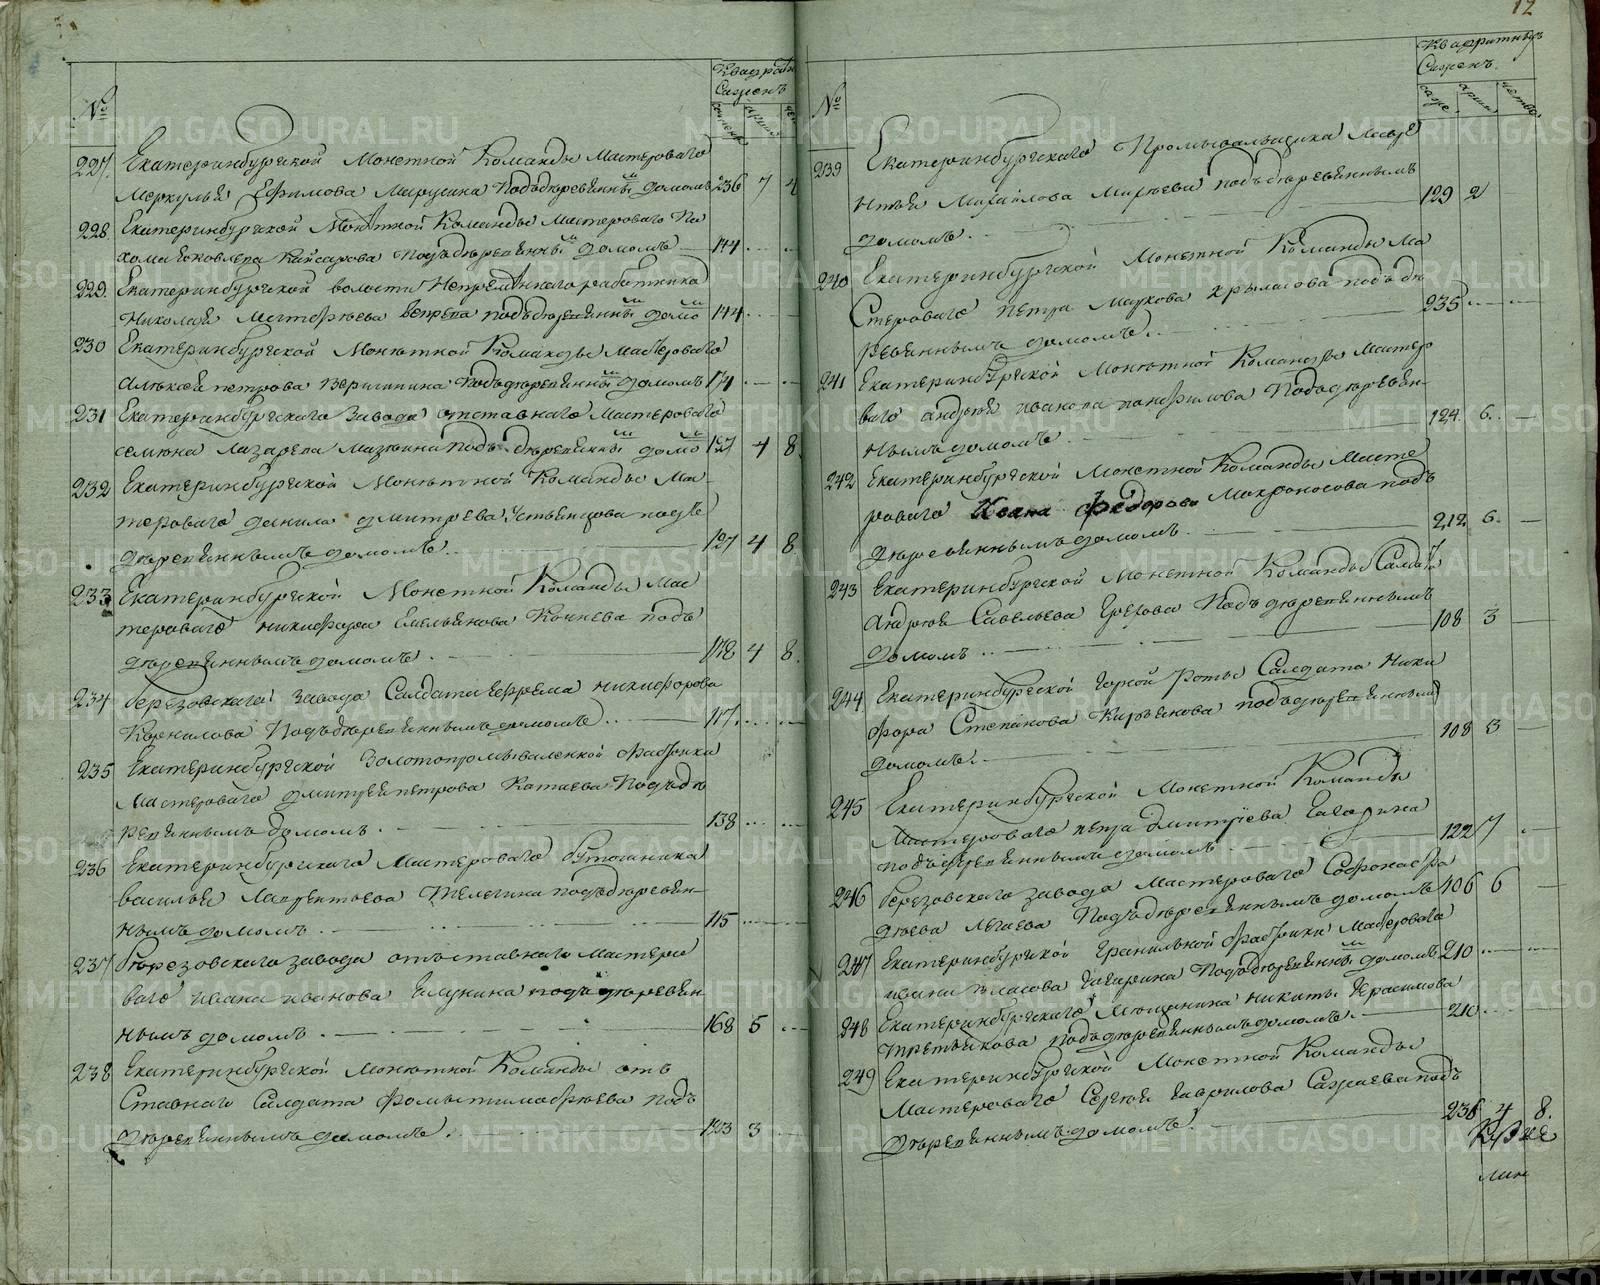 12
№
Квадратн.
Саженъ
227
Екатеринбургской Монетной Команды Мастероваго
Меркулья Ефимова Марушина Подъдѣревянны домомъ 236 7 4
228
Екатеринбургской Монетной Команды Мастероваго Па
хома Яковлева Кайсарова подъдѣревянны домомъ 144
229.
Екатеринбургской волости Непремѣннаго работника
Николая Матфѣева подъдѣревянны домо 144
230
Екатеринбургской Монѣтной Команды Мастероваго
Алѣксея петрова Веришнина Подъдѣревянны домомъ 174
231
Екатеринбургскаго Завода отставнаго Мастероваго
семѣна Лазарева подъ дѣревянны домо 127 4 8
232
Екатеринбургской Монѣтной Команды Мас
тероваго данила дмитрева Устьянцова подъ
дѣревянны́мъ домомъ 127 4 8
233
Екатеринбургской Монетной Команды Мас
тероваго никифора Емельянова Кочнева подъ
дѣревяннымъ домомъ 178 4 8
234
Березовскаго завода Салдата Ефрема никифорова
Корнилова Подъдѣревяннымъ домомъ 117
235
Екатеринбургской Золотопромываленной Фабрики
Мастероваго дмитрея петрова Катаева Подъдѣ
ревяннымъ домомъ 138
236
Екатеринбургскаго Мастероваго
василья Лаврентьева Телегина подъдѣревян
нымъ домомъ 115
237
Березовскаго завода отъставнаго Мастеро
ваго ивана иванова подъ дѣревян
нымъ домомъ 168 5
238
Екатеринбургской Монѣтной Команды отъ
Ставнаго Салдата Фомы тимофѣева подъ
дѣревяннымъ домомъ 123 3
№
Квадратныхъ
Саженъ.
саже. арши. четве.
239
Екатеринбургскаго Промывальщика
Михайлова подъдѣревяннымъ
домомъ. 129 2
240
Екатеринбургской Монетной Команды Ма
Стероваго петра Маркова Крыласова подъ дѣ
ревяннымъ домомъ 235
241
Екатеринбургской Монѣтной Команды Мастер
ваго андрея иванова панфилова Подъдѣревян
нымъ домомъ 124 6
242
Екатеринбургской Монетной Команды Масте
роваго Ивана Федорова Мокроносова подъ
дѣревяннымъ домомъ 212 6
243
Екатеринбургской Монетной Команды Салдата
Андрея Савельева Грехова Подъдѣревяннымъ
домомъ 108 3
244
Екатеринбургской горной роты Салдата Ники
фора Степанова Кирьянова подъдѣревяннымъ
домомъ. 108 3
245
Екатеринбургской Монетной Команды
Мастероваго петра дмитріева Гагарина
подъдѣревяннымъ домомъ 122 7
246
Березовскаго завода Мастероваго
Подъдѣревяннымъ домомъ 406 6
247
Екатеринбургской Гранильной Фабрики Мастероваго
ивана власова Гагарина Подъдѣревянны домомъ 210
248
Екатеринбургскаго Мѣщанина никиты Герасимова
третьякова подъдѣревяннымъ домомъ 210
249
Екатеринбургской Монетной Команды
Мастероваго Сергея гаврилова подъ
дѣревяннымъ домомъ 236 4 8.